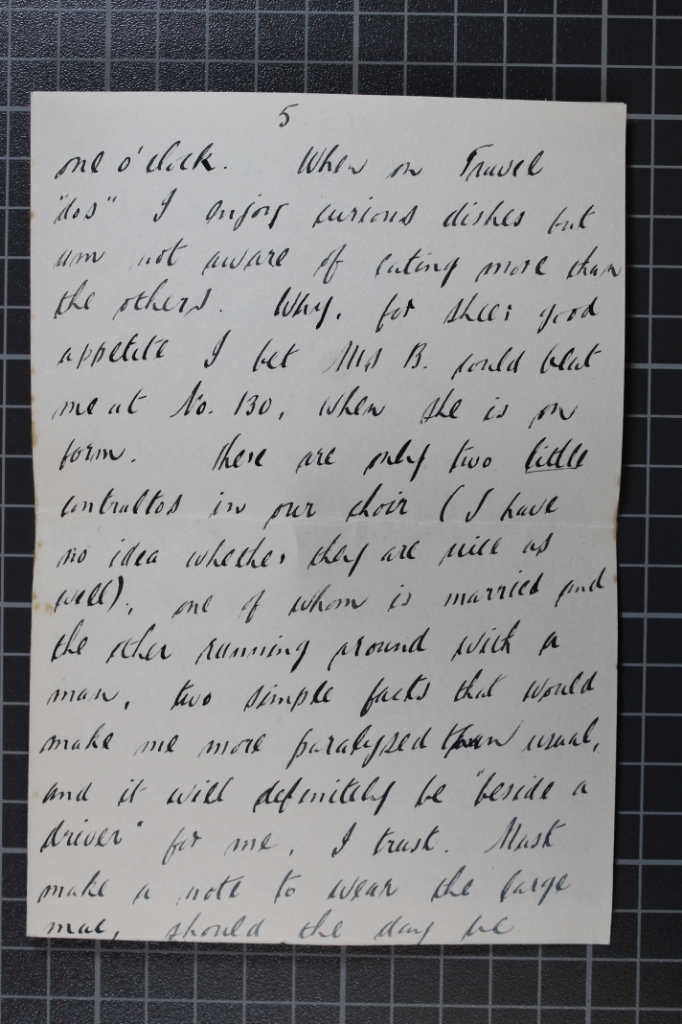 5
one o'clock. When on Travel
"dos" I enjoy curious dishes but
am not aware of eating more than
the others. Why, for sheer good
appetite I bet Mrs B. could beat
me at No. 130, when she is on
form. There are only two little
contraltos in our choir (I have
no idea whether they are nice as
well), one of whom is married and
the other running around with a
man, two simple facts that would
make me more paralysed than usual,
and it will definitely be "beside a
driver" for me, I trust. Must
make a note to wear the large
mac, should the day be